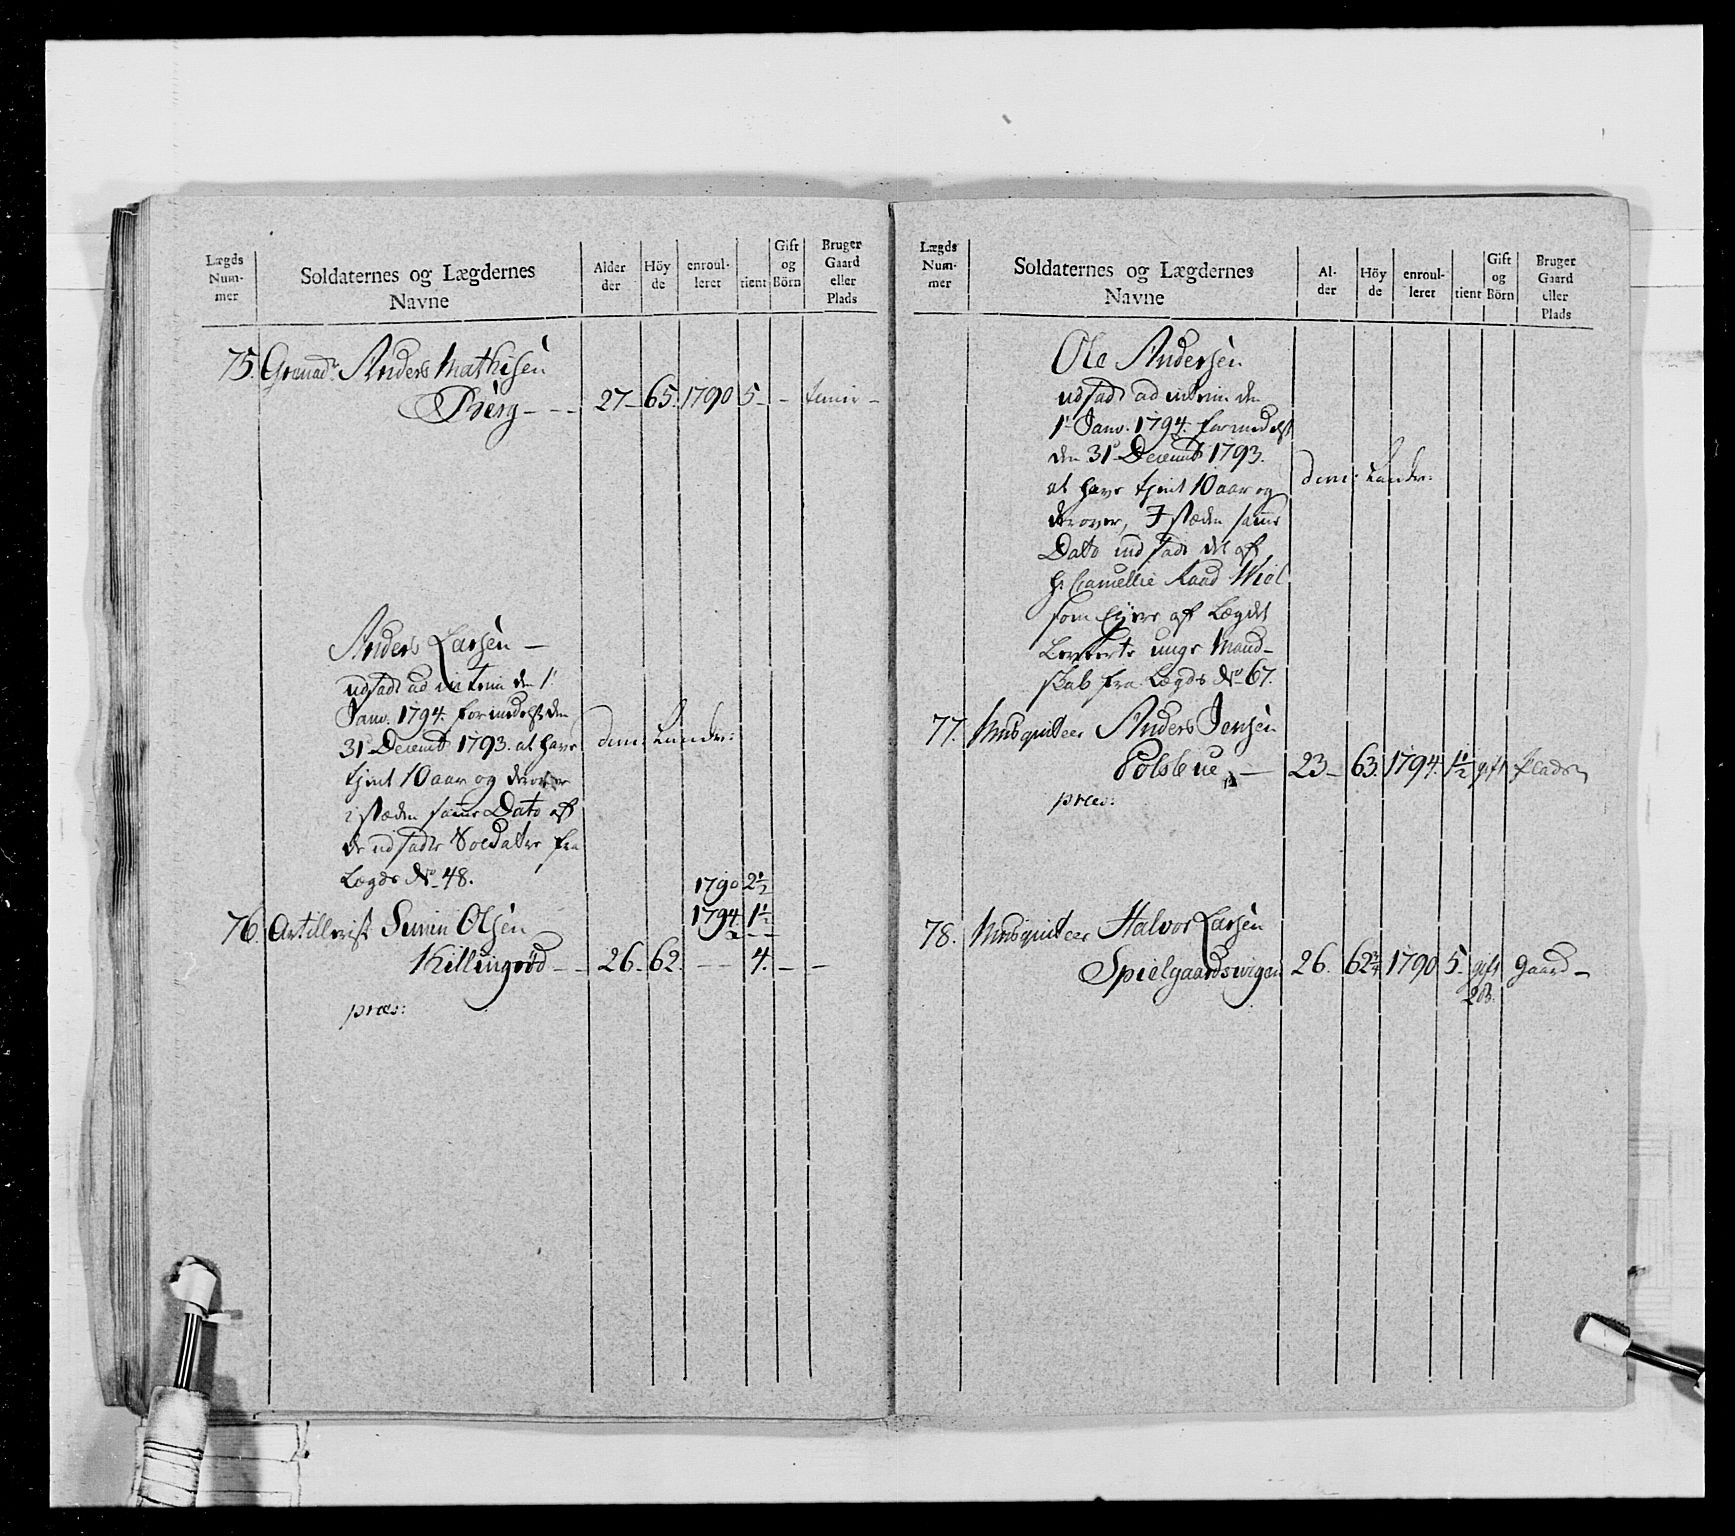 Lægds Num- mer
Soldaternes og Lægdernes Navne
Alder der
Höy de
enroul- leret
tient
Gift og Börn
Bruger Gaard eller Plads
75. Grenadr Anders Mathisen
Berg - - - 27- 65. 1790 5- -
Anders Larsen -
udsadt ad interim den 1'
Janv. 1794. formedelst den
31' Decemb 1793. at have
tjent 10 aar og derover
i stæden samme Dato af
de udsadte Soldater fra
Lægds No 48.
1790 2 1/2
1794 1 1/2
76. Artillerist Olsen
Killingröd - - 26. 62. - - 4. - -
præs:
Lægds Num- mer
Soldaternes og Lægdernes Navne
Al- der
Höy de
enroul- leret
tient
Gift og Börn
Bruger Gaard eller Plads
Ole Andersen
udsadt ad interim den
1' Janv. 1794. formedelst
den 31' Decemb 1793.
at have tjent 10 aar og
derover, I stæden samme
Dato indsadt det af
H. Raad Wiel
som Ejere af Lægdet
Leverte unge Mand-
skab fra Lægds No 67.
77. Musqueteer Anders Jensen
Polsbue - 23- 63. 1794. 1 1/2 gift Plads
præs:
78. Musqueteer Halvor Larsen
Spielgaardswigen 26. 62 3/4 1790 5- gift Gaard -
2 B.